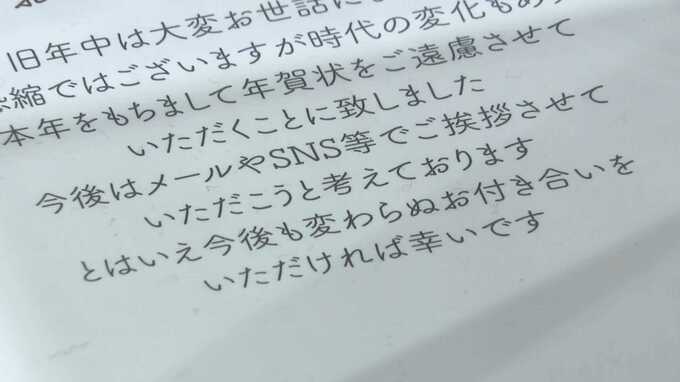 旧年中は大変お世話に
縮ではございますが時代の変化も
本年をもちまして年賀状をご遠慮させて
いただくことに致しました
今後はメールやSNS等でご挨拶させて
いただこうと考えております
とはいえ今後も変わらぬお付き合いを
いただければ幸いです